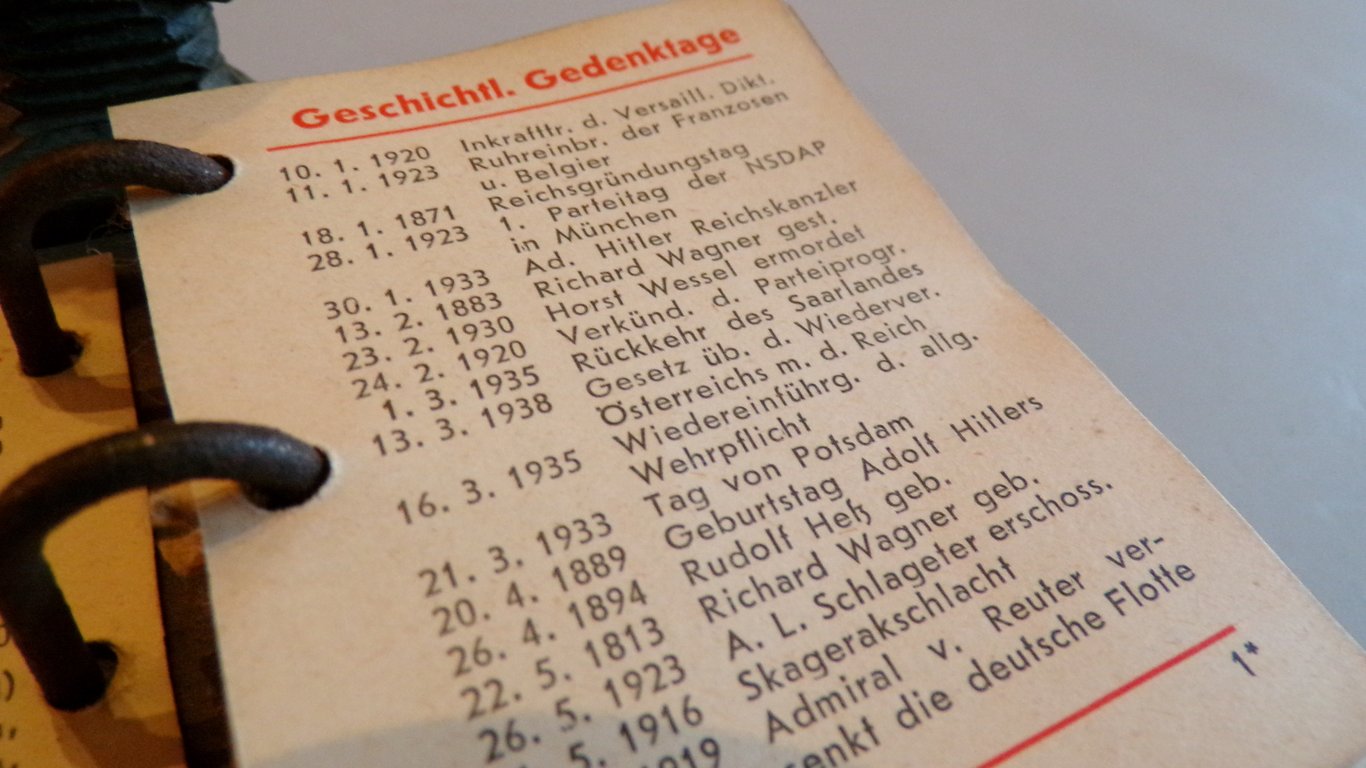 Geschichtl. Gedenktage
10. 1. 1920 Inkrafttr. d. Versaill. Dikt.
11. 1. 1923 Ruhreinbr. der Franzosen
u. Belgier
18. 1. 1871 Reichsgründungstag
28. 1. 1923 1. Parteitag der NSDAP
in München
30. 1. 1933 Ad. Hitler Reichskanzler
13. 2. 1883 Richard Wagner gest.
23. 2. 1930 Horst Wessel ermordet
24. 2. 1920 Verkünd. d. Parteiprogr.
1. 3. 1935 Rückkehr des Saarlandes
13. 3. 1938 Gesetz üb. d. Wiederver.
Österreichs m. d. Reich
16. 3. 1935 Wiedereinführg. d. allg.
Wehrpflicht
21. 3. 1933 Tag von Potsdam
20. 4. 1889 Geburtstag Adolf Hitlers
26. 4. 1894 Rudolf Heß geb.
22. 5. 1813 Richard Wagner geb.
26. 5. 1923 A. L. Schlageter erschoss.
5. 1916 Skagerakschlacht
1919 Admiral v. Reuter ver-
senkt die deutsche Flotte
1*